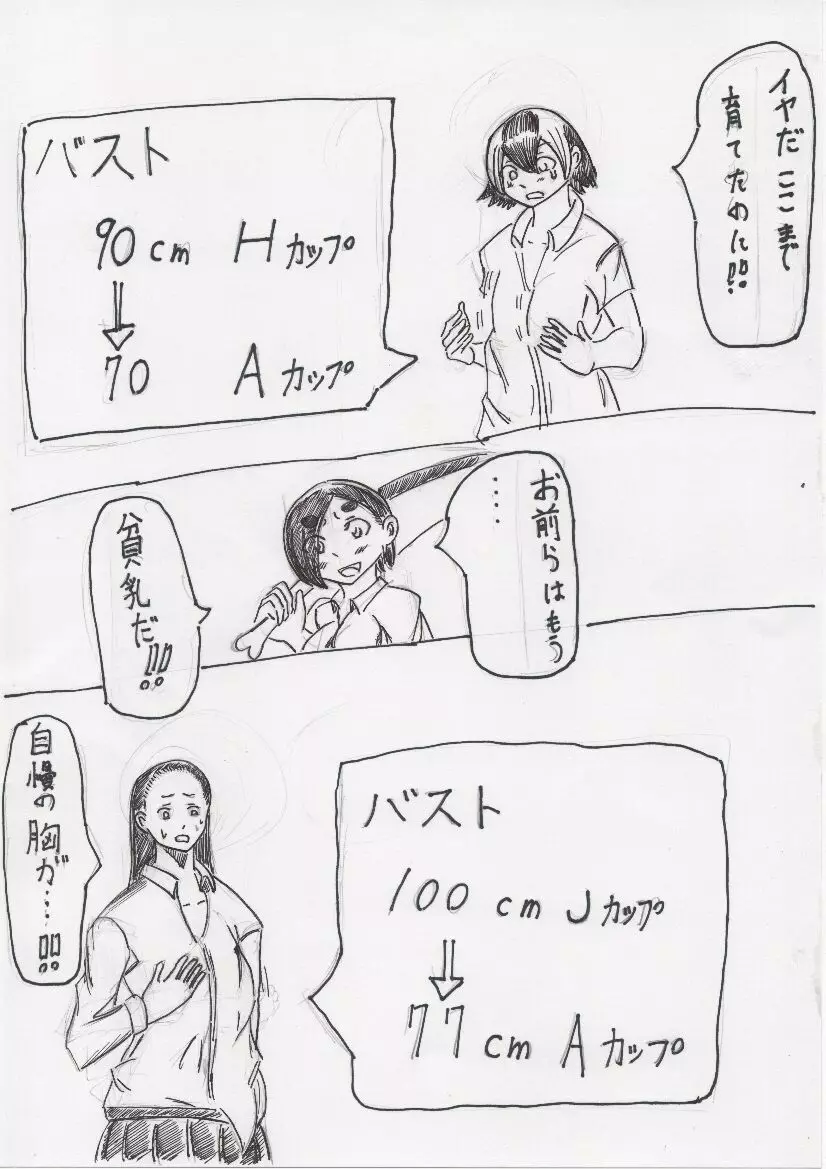 イヤだここまで
育てたのに!!
バスト
90cm Hカップ
⇓
70 Aカップ
お前らはもう
…
貧乳だ!!
バスト
100cm Jカップ
⇓
77cm Aカップ
自慢の胸が…!!